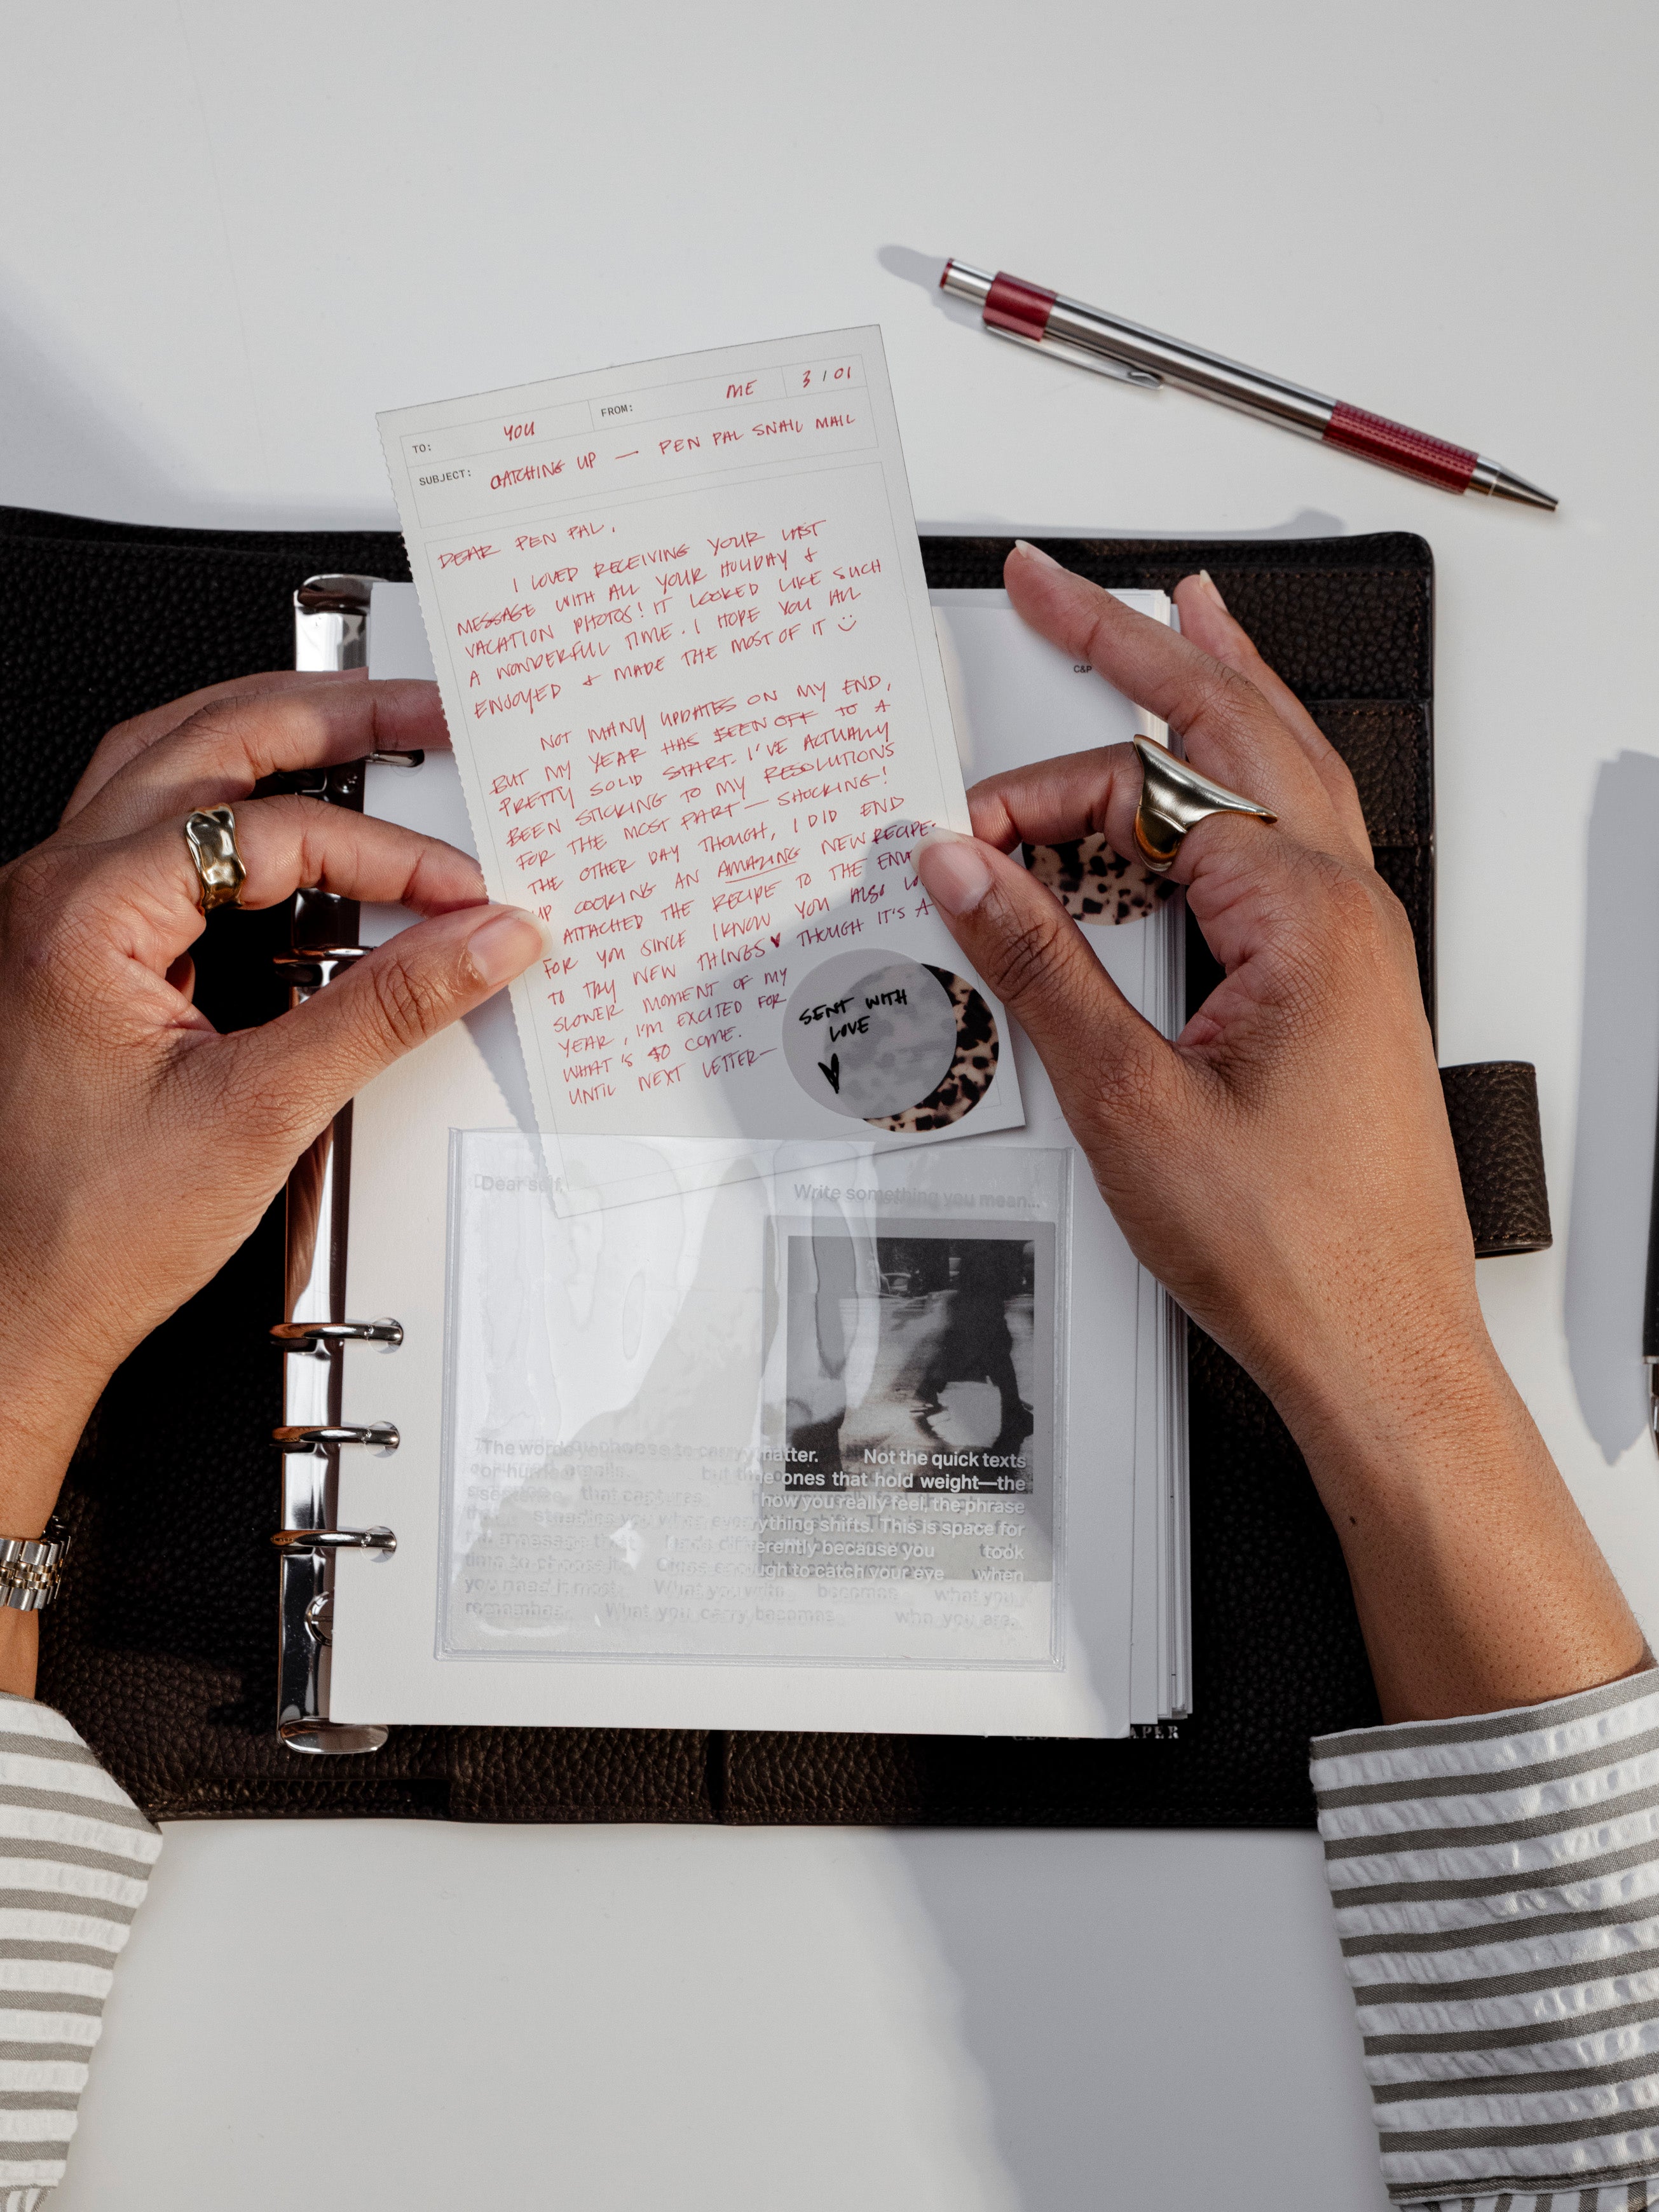 TO: YOU FROM: ME 3/01
SUBJECT: CATCHING UP — PEN PAL SNAIL MAIL
DEAR PEN PAL,
I LOVED RECEIVING YOUR LAST
MESSAGE WITH ALL YOUR HOLIDAY &
VACATION PHOTOS! IT LOOKED LIKE SUCH
A WONDERFUL TIME. I HOPE YOU ALL
ENJOYED & MADE THE MOST OF IT
NOT MANY UPDATES ON MY END,
BUT MY YEAR HAS BEEN OFF TO A
PRETTY SOLID START. I'VE ACTUALLY
BEEN STICKING TO MY RESOLUTIONS
FOR THE MOST PART — SHOCKING!
THE OTHER DAY THOUGH, I DID END
UP COOKING AN AMAZING NEW RECIPE.
ATTACHED THE RECIPE TO THE
FOR YOU SINCE I KNOW YOU ALSO
TO TRY NEW THINGS♥ THOUGH IT'S A
SLOWER MOMENT OF MY
YEAR, I'M EXCITED FOR
WHAT'S TO COME.
UNTIL NEXT LETTER—
SENT WITH
LOVE
C&P
Dear
Write something you mean...
The words you choose to carry matter. Not the quick texts
or but the ones that hold weight—the
that captures how you really feel, the phrase
you when everything shifts. This is space for
message that lands differently because you took
time to Close enough to catch your eye when
you need it most. What you write becomes what you
remember. What you carry becomes who you are.
APER